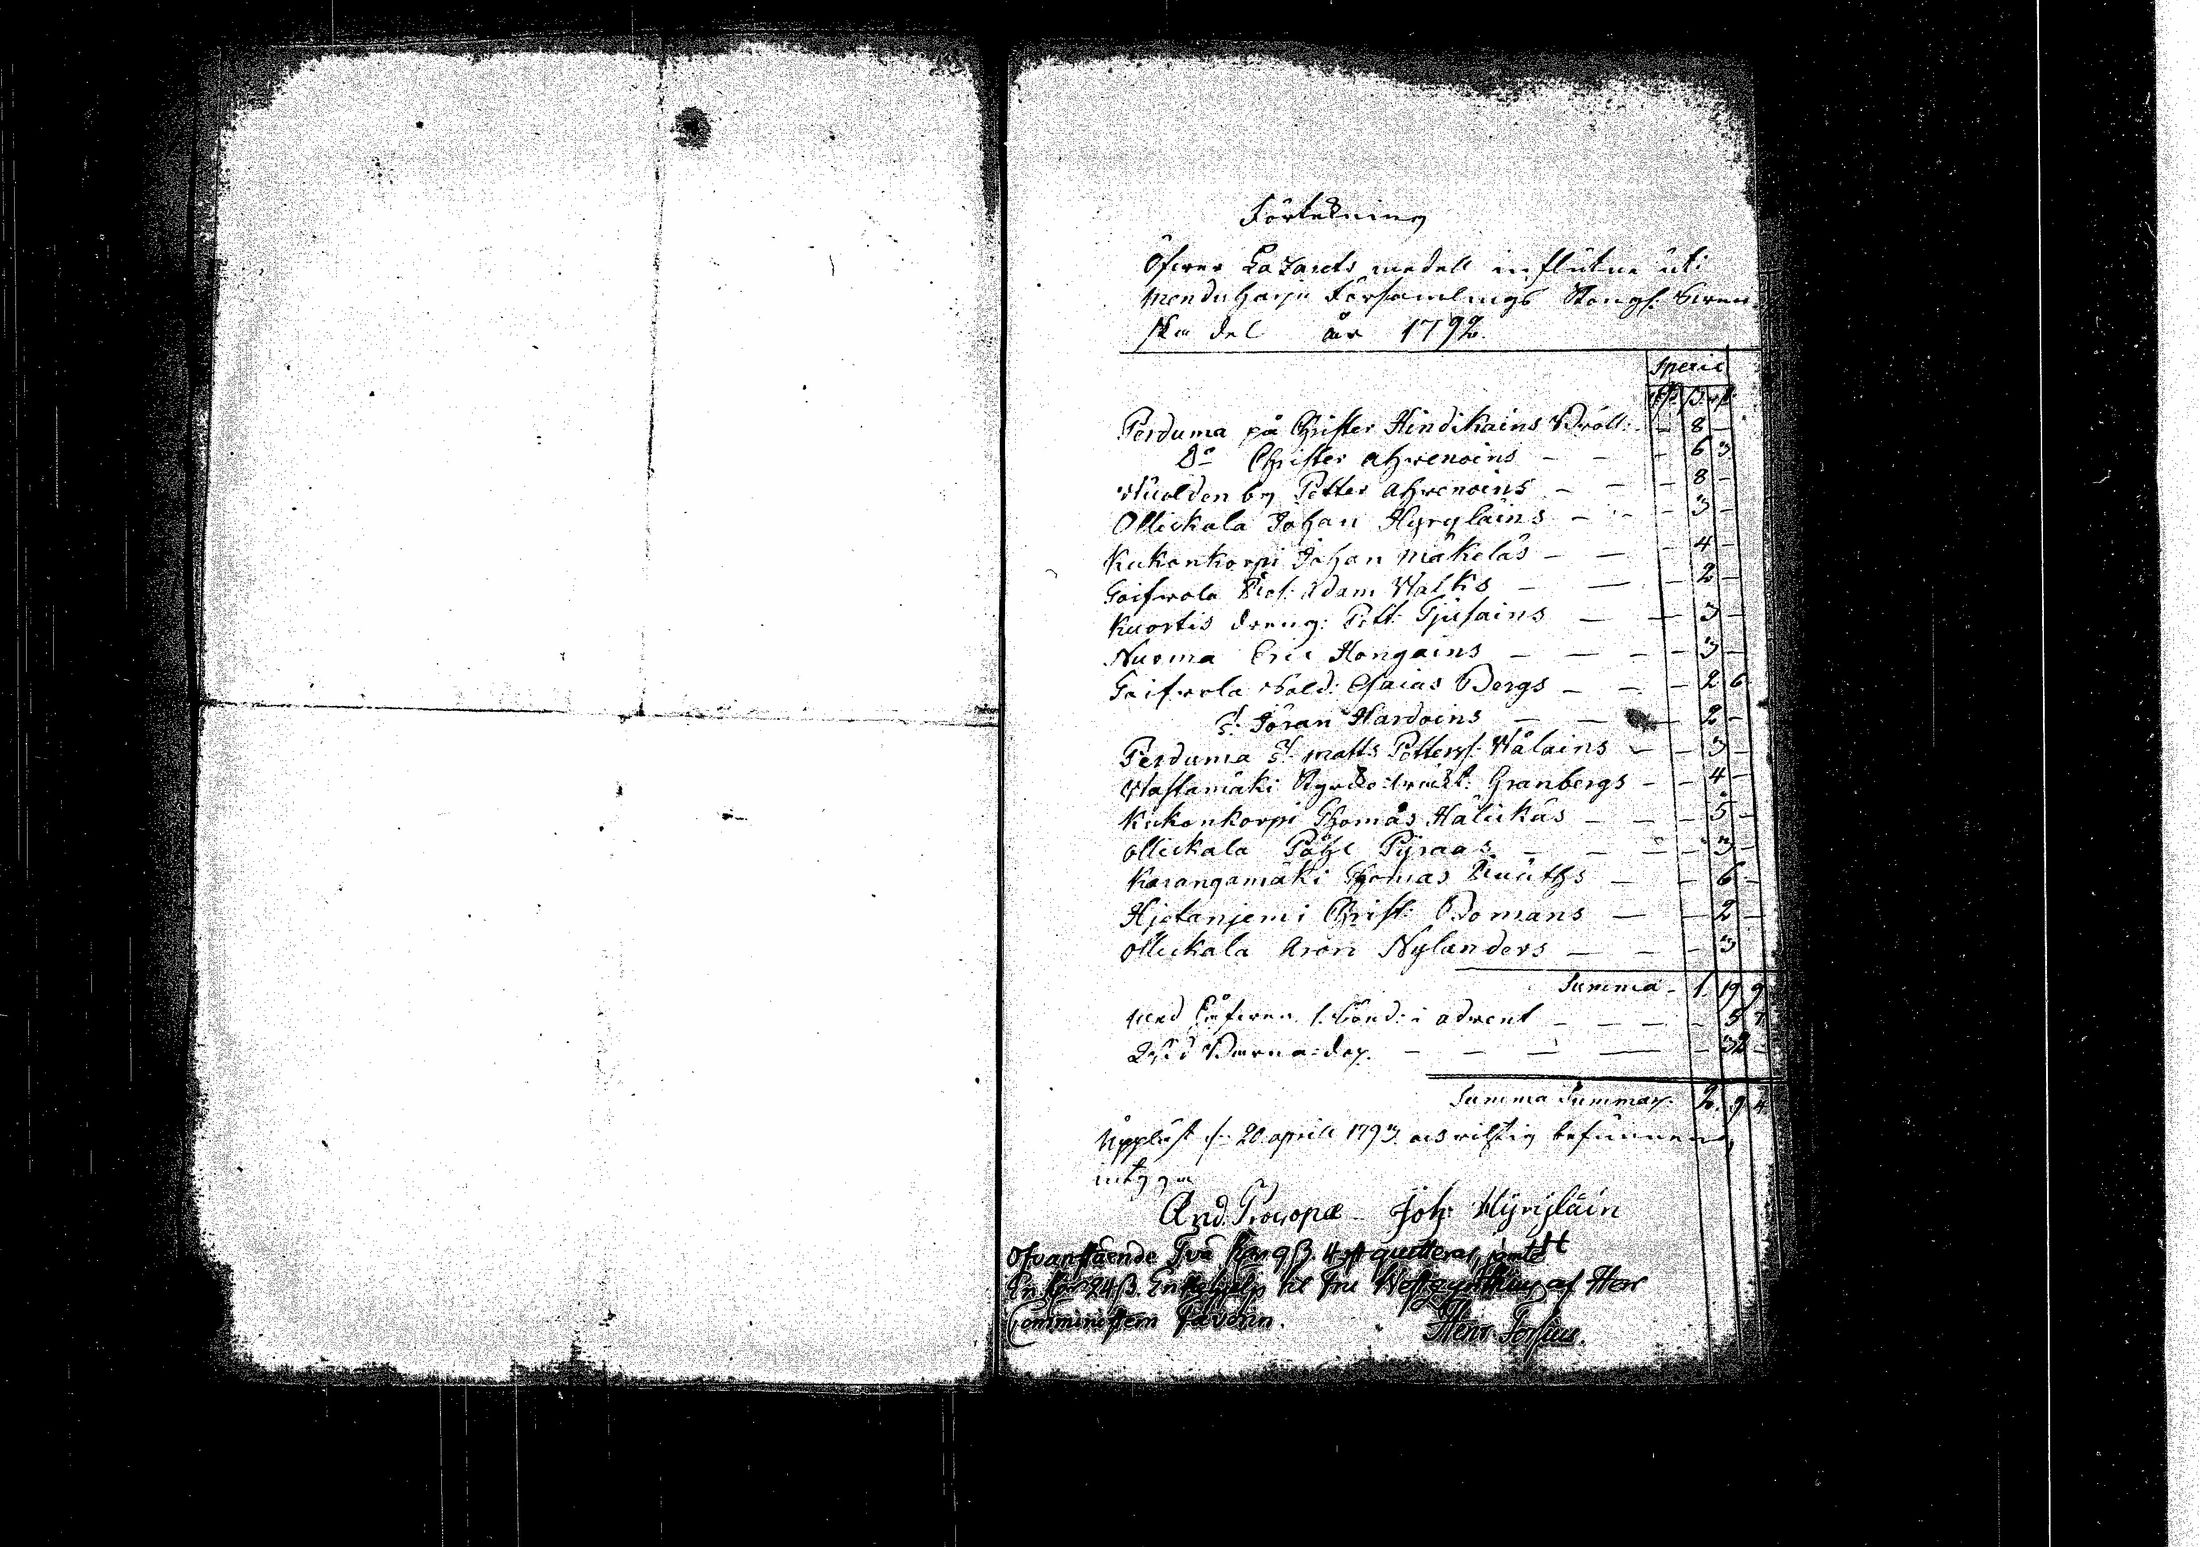 Förtekning
Öfwer Lazarets medell influtne uti
Menduharju Församlings Kongl. Swen-
ska del år 1792.
Specie
Perduma på Christer Hindikains Bröll: — 8 —
Do Christer Ahrenoins — — — 6 3
by Petter Ahrenoins — — — 8 —
Ollickala Johan Hyrylains — — — 3 —
Kukonkorpi Johan Mäkeläs — — — 4 —
Toifwola Adam Valks — — — 2 —
Kuortis dreng: Pett: Tjusains — — — 3 —
Nuoma Eric Hongains — — — 3 —
Toifwola Sold: Esaias Bergs — — — 2 6
Göran Hardoins — — — 2 —
Perduma Matts Petterss: Wålains — — 3 —
Wastamäki Granbergs — — 4 —
Kukonkorpi Thomas Häliikäs — — — 5 —
Ollickala Påhl Pyraas — — — 3 —
Karangamäki Thomas Knuuths — — 6 —
Hjetanjemi Christ: Bomans — — 2 —
Ollickala Aron Nylanders — — — 3
Summa — 1. 19 9
med Håfwen 1. Sönd: i advent — — — — 5 7
Barna-dop. — — — — — 32 —
Summa Summar. 2. 9 4.
Uppläst d. 20 april 1793. och riktig befunnen,
intyga
And. Procopæ Joh: Hyryläin
Ofvanstående Två 9 ß. 4 quitteras, jämte
En 24 ß. af Herr
Comministern Favorin.
Henr. Forsius.